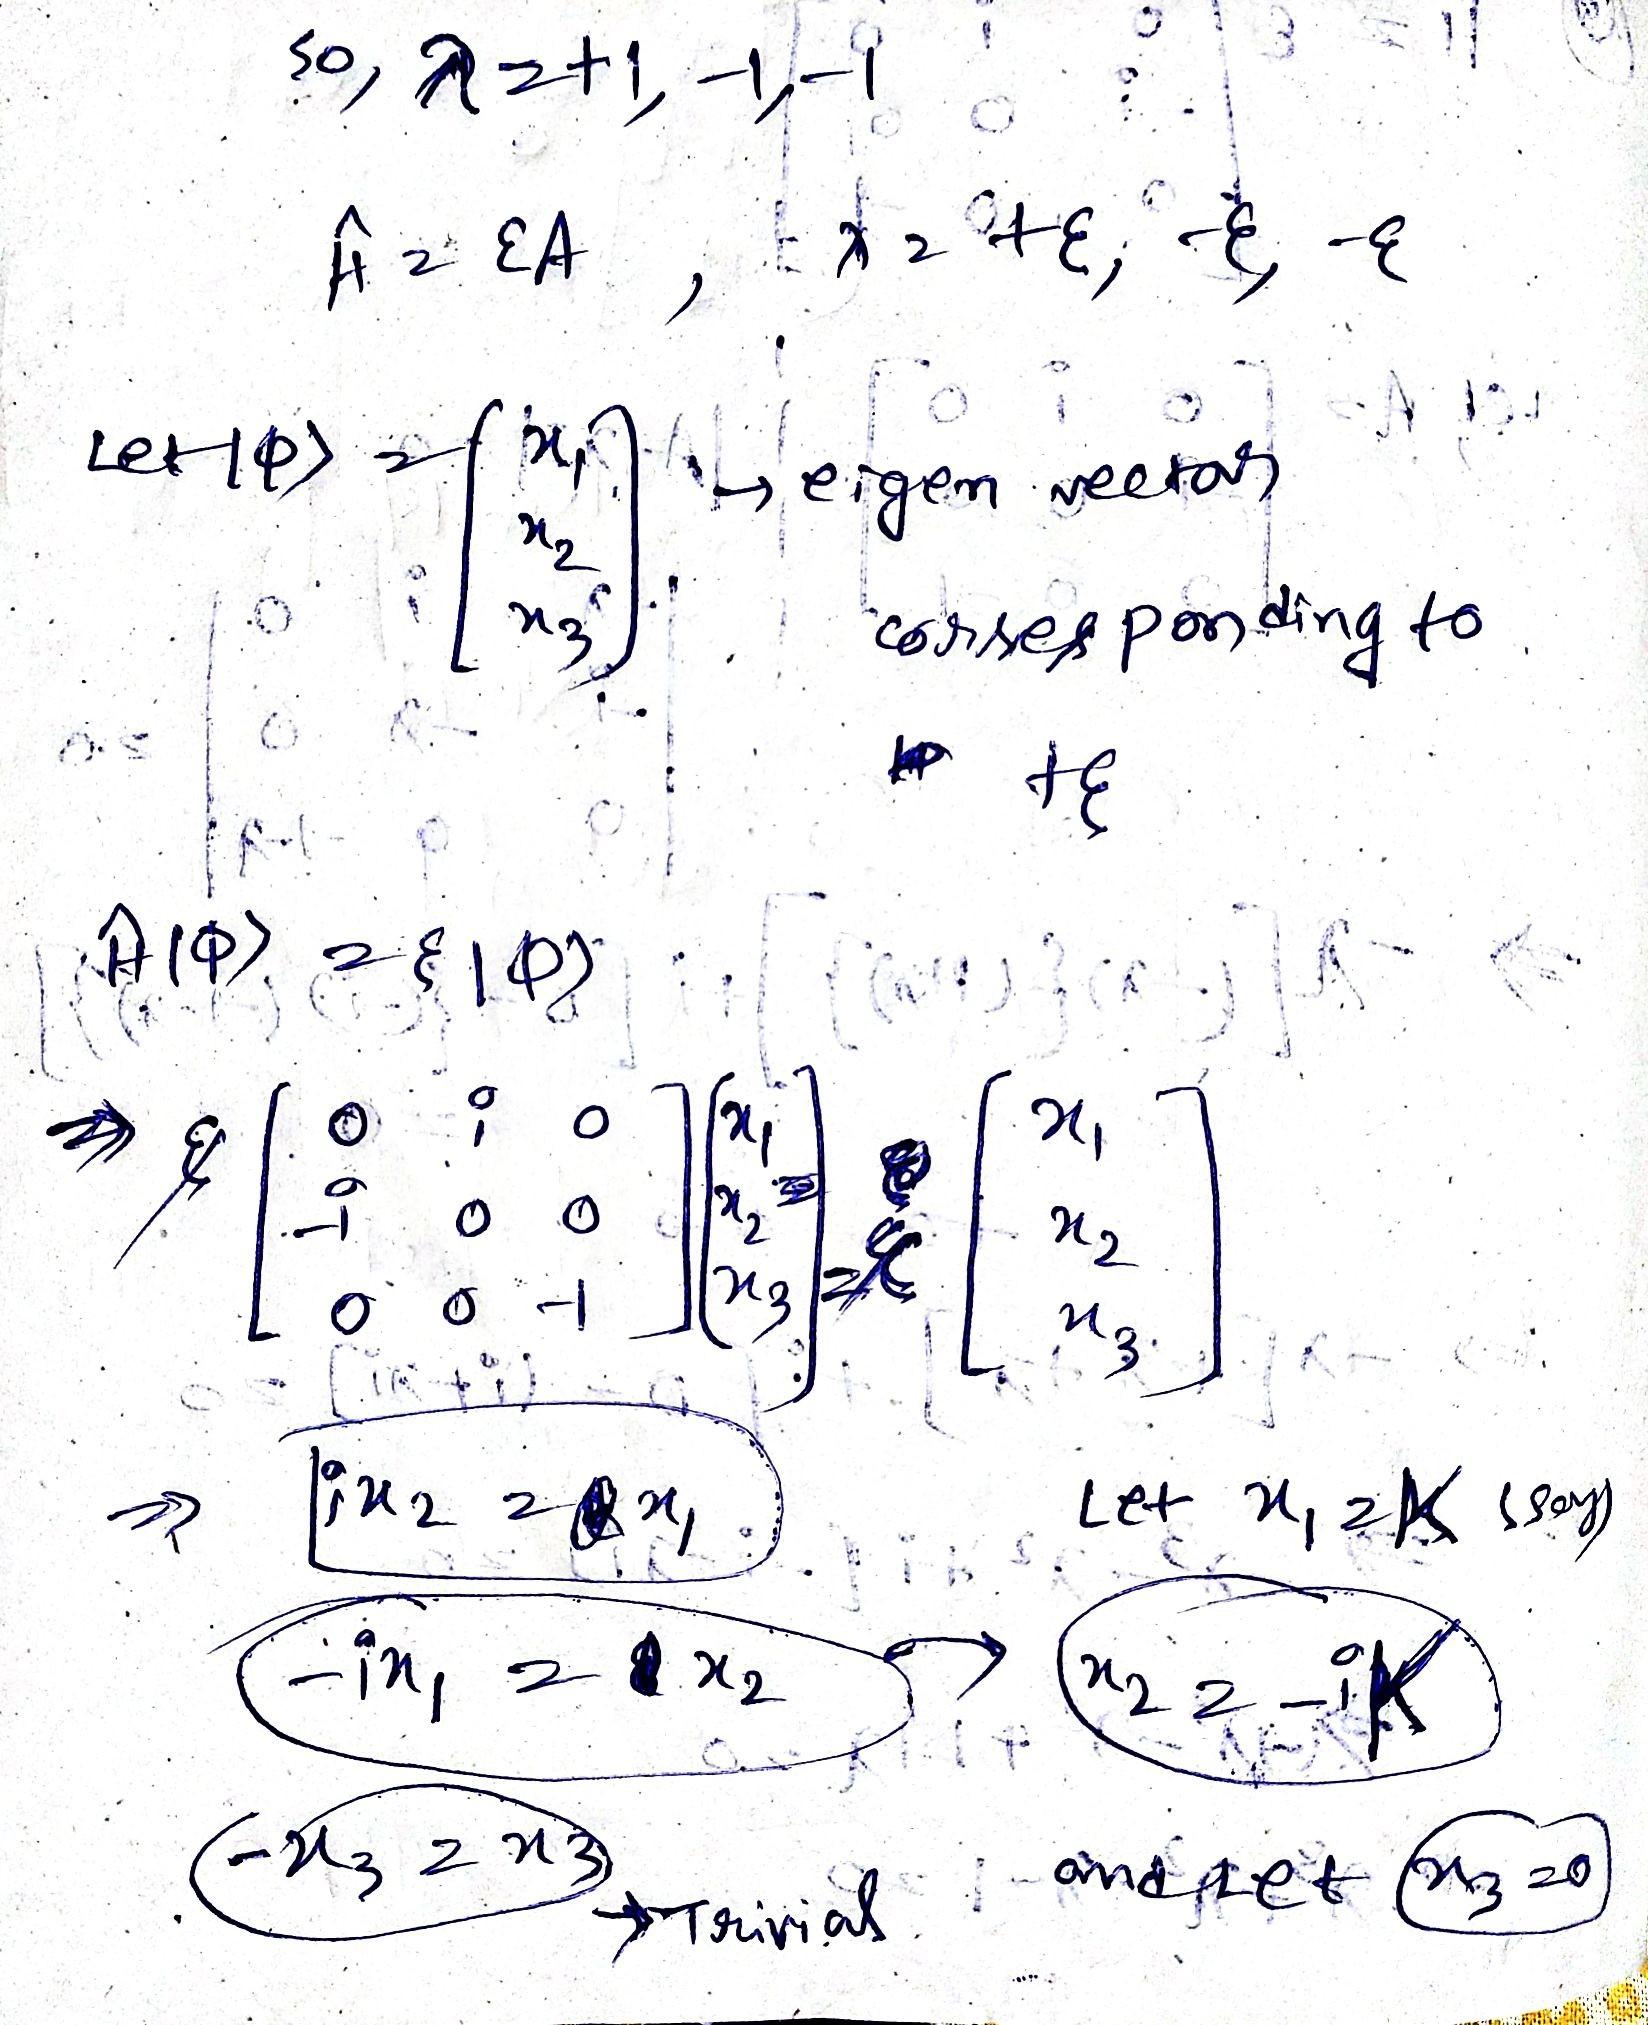 so, λ = +1, -1, -1
Ĥ = εA , λ = +ε, -ε, -ε
Let |φ> = [x₁ x₂ x₃] → eigen vector
corresponding to
+ε
Ĥ|φ> = ε|φ>
⇒ ε [0 i 0
-i 0 0
0 0 -1] [x₁ x₂ x₃] = ε [x₁ x₂ x₃]
⇒ ix₂ = x₁ Let x₁ = K (say)
-ix₁ = x₂ → x₂ = -iK
-x₃ = x₃ → Trivial and let x₃ = 0